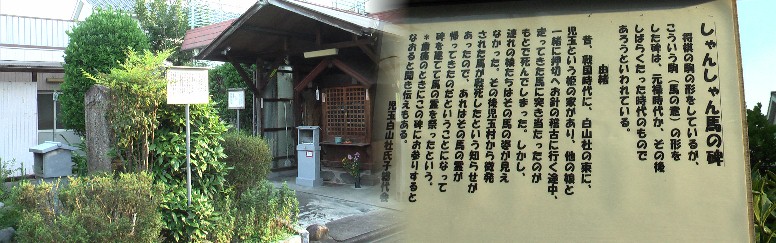 しゃんしゃん馬の碑
将棋の駒の形をしているが、
こういう駒（馬の意）の形を
した碑は、元禄時代か、その後
しばらくたった時代のもので
あろうといわれている。
由緒
昔、戦国時代に、白山社の東に、
児玉という姫の家があり、他の娘と
一緒に押切へお針の稽古に行く途中、
走ってきた馬に突き当たったのが
もとで死んでしまった。しかし、
連れの娘たちはその馬の姿が見え
なかった。その後児玉村から徴発
された馬が戦死したという知らせが
あったので、あれはその馬の霊が
帰ってきたのだということになって
碑を建てて馬の霊を祭ったという。
＊歯痛のときにこの碑にお参りすると
なおると聞き伝えもある。
児玉白山社氏子総代会